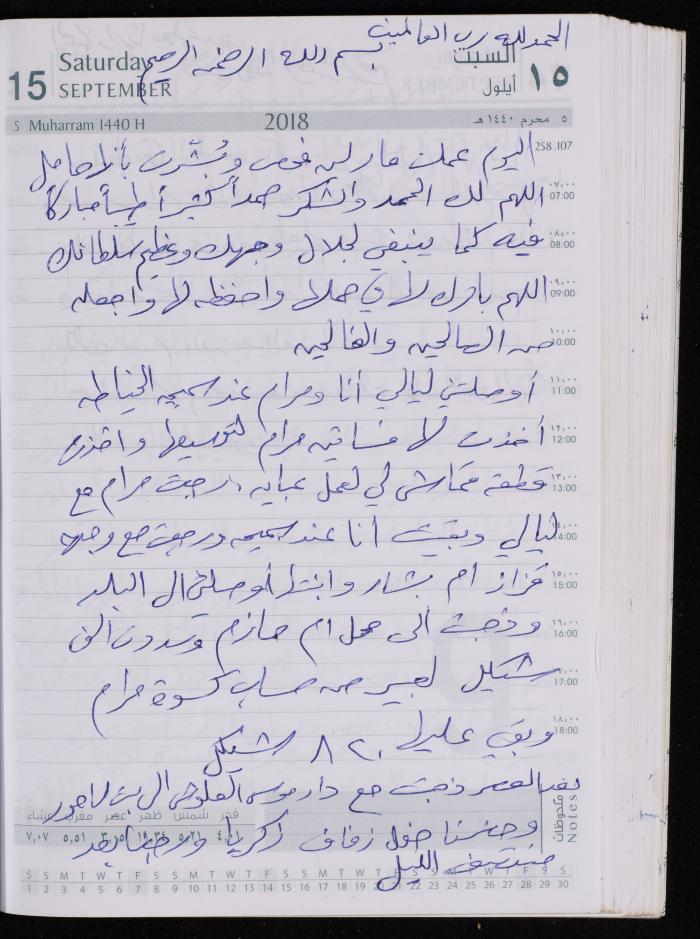 الحمد لله رب العالمين
بسم الله الرحمن الرحيم
15 Saturday SEPTEMBER
السبت ١٥ أيلول
5 Muharram 1440 H 2018 ٥ محرم ١٤٤٠ هـ
258.107
اليوم عملت مارلين فحص وبُشّرت بأنها حامل
٠٧,٠٠ 07:00
اللهم لك الحمد والشكر حمداً كثيراً طيباً مباركاً
٠٨,٠٠ 08:00
فيه كما ينبغي لجلال وجهك وعظيم سلطانك
٠٩,٠٠ 09:00
اللهم بارك لها في حملها واحفظه لها واجعله
١٠,٠٠ 10:00
من الصالحين والفالحين
١١,٠٠ 11:00
أوصلتني ليالي أنا ومرام عند سميحه الخياطه
١٢,٠٠ 12:00
أخذت لها فساتين مرام لتوسيعها وأخذت
١٣,٠٠ 13:00
قطعة قماش لي لعمل عبايه. رجعت مرام مع
14:00
ليالي وبقيت أنا عند سميحه ورجعت مع
١٥,٠٠ 15:00
فزاز ام بشار وابنتها أوصلني الى البلد
١٦,٠٠ 16:00
وذهبت الى محل ام حازم وسددت الفي
17:00
شيكل لعبير من حساب كسوة مرام
١٨,٠٠ 18:00
وبقي عليها ٨٢٠ شيكل
بعد العصر ذهبت مع دار موسى العلوشي الى بيت لاهور
وحضرنا حفل زفاف زكريا ورجعنا بعد
منتصف الليل
ملاحظات Notes
فجر شمس ظهر عصر مغرب عشاء
٥,٢١ ٥,٥١ ٧,٠٧
S S M T W T F S S M T W T F S S M T W T F S S M T W T F S S
1 2 3 4 5 6 7 8 9 10 11 12 13 14 15 16 17 18 19 20 21 22 23 24 25 26 27 28 29 30